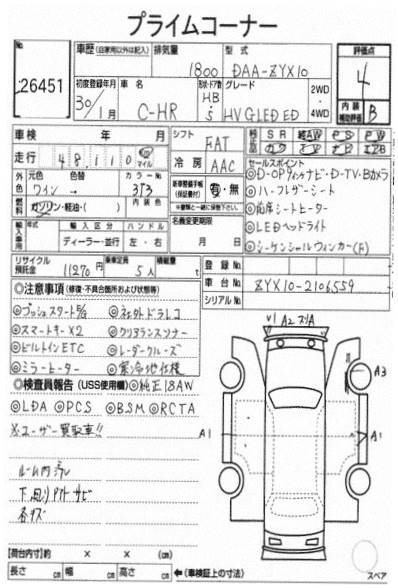 プライムコーナー
No. 26451
車歴(自家用以外は記入) 排気量 1800 型式 DAA-ZYX10
評価点 4
初度登録年月 30/1月 車名 C-HR 形状・ドア数 HB 5 グレード HV G LED ED 2WD・4WD
内装補助評価 B
車検 年 月 シフト FAT
装備 SR 純AW PS PW カワ TV ナビ エアB
走行 48,110 km マイル 冷房 AAC
外色 元色 ワイン 色替 → カラーNo. 3T3
燃料 ガソリン・軽油・( ) 内装色
新車整備手帳(保証書付) 有・無
※書類と一緒に保管下さい。
名義変更期限 月 日
輸入車用 年式 輸入区分 ディーラー・並行 ハンドル 左・右
セールスポイント
◎D-OPナビ・D-TV・Bカメラ
◎ハーフレザーシート
◎前席シートヒーター
◎LEDヘッドライト
◎シーケンシャルウィンカー(F)
リサイクル預託金 11270円 乗車定員 5人 積載量 t
登録No.
車台No. ZYX10-2106559
シリアルNo.
◎注意事項(修復・不具合箇所および状態等)
◎プッシュスタートS/G ◎社外ドラレコ
◎スマートキーX2 ◎クリアランスソナー
◎ビルトインETC ◎レーダークルーズ
◎ミラーヒーター ◎寒冷地仕様
◎検査員報告(USS使用欄) ◎純正18AW
◎LDA ◎PCS ◎BSM ◎RCTA
※ユーザー買取車!!
ルーム内汚レ
下廻りサビ
各キズ
A2
A3
A1
A1
【荷台内寸】約 × × (cm)
長さ cm 幅 cm 高さ cm ←(車検証上の寸法)
スペア